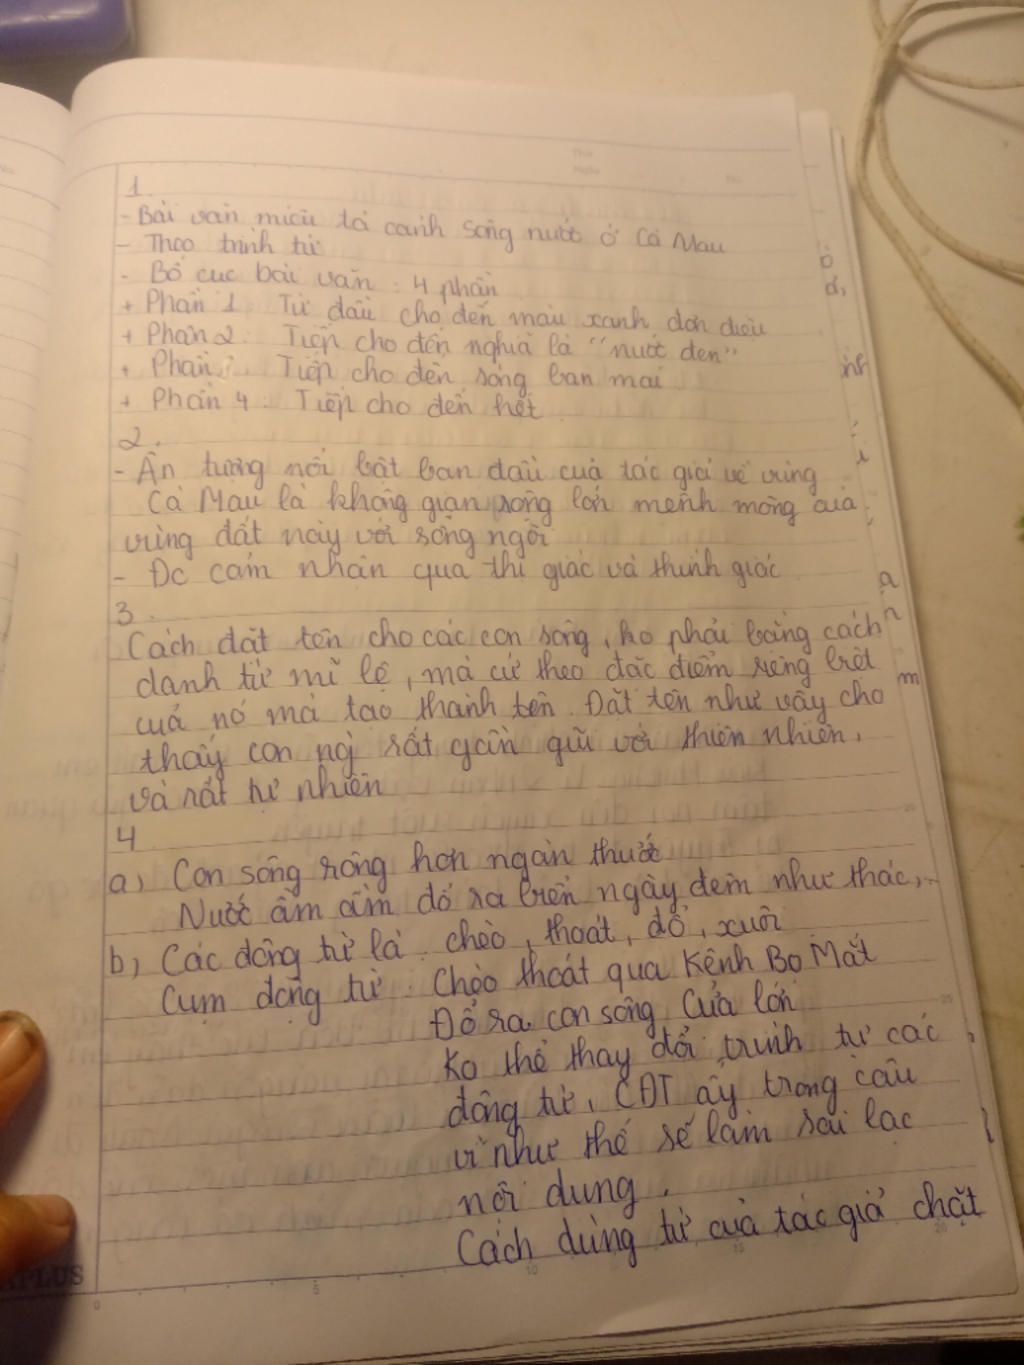 1.
- Bài văn miêu tả cảnh sông nước ở Cà Mau
- Theo trình tự
- Bố cục bài văn : 4 phần
+ Phần 1 : Từ đầu cho đến màu xanh đơn điệu
+ Phần 2 : Tiếp cho đến nghĩa là "nước đen"
+ Phần : Tiếp cho đến sóng ban mai
+ Phần 4 : Tiếp cho đến hết
2.
- Ấn tượng nổi bật ban đầu của tác giả về vùng
Cà Mau là không gian rộng lớn mênh mông của
vùng đất này với sông ngòi
- Đc cảm nhận qua thị giác và thính giác
3.
Cách đặt tên cho các con sông, ko phải bằng cách
danh từ mĩ lệ, mà cứ theo đặc điểm riêng biệt
của nó mà tạo thành tên. Đặt tên như vậy cho
thấy con ng` rất gần gũi với thiên nhiên,
và rất tự nhiên
4
a) Con sông rộng hơn ngàn thước
Nước ầm ầm đổ ra biển ngày đêm như thác,..
b) Các động từ là : chèo, thoát, đổ, xuôi
Cụm động từ : Chèo thoát qua Kênh Bọ Mắt
Đổ ra con sông Cửa lớn
Ko thể thay đổi trình tự các
động từ, CĐT ấy trong câu
vì như thế sẽ làm sai lạc
nội dung.
Cách dùng từ của tác giả chặt